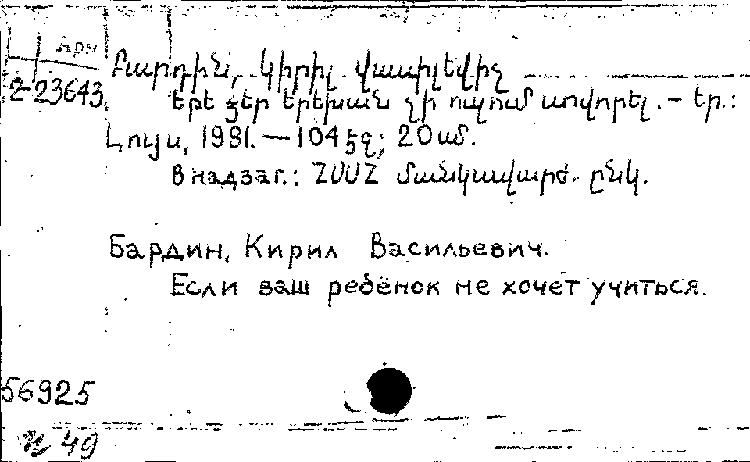 Арм
2-23643
Բարդին, Կիրիլ Վասիլևիչ
Եթե ձեր երեխան չի ուզում սովորել. – Եր.:
Լույս, 1981. — 104 էջ; 20 սմ.
В надзаг.: ՀՍՍՀ մանկավարժ. ընկ.
Бардин, Кирил Васильевич.
Если ваш ребёнок не хочет учиться.
56925
49